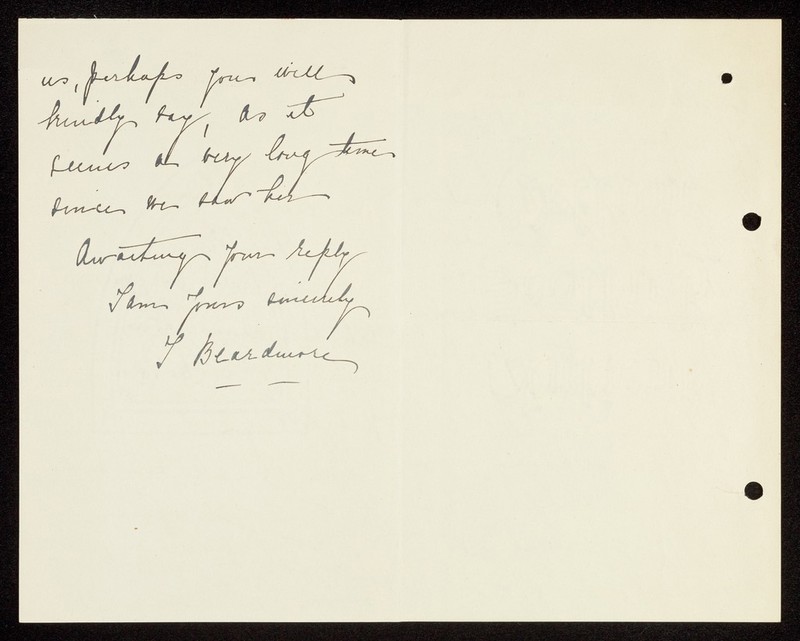 us, perhaps you will
kindly say, as it
seems a very long time
since we saw her
Awaiting your reply
I am yours sincerely
I Beardmore